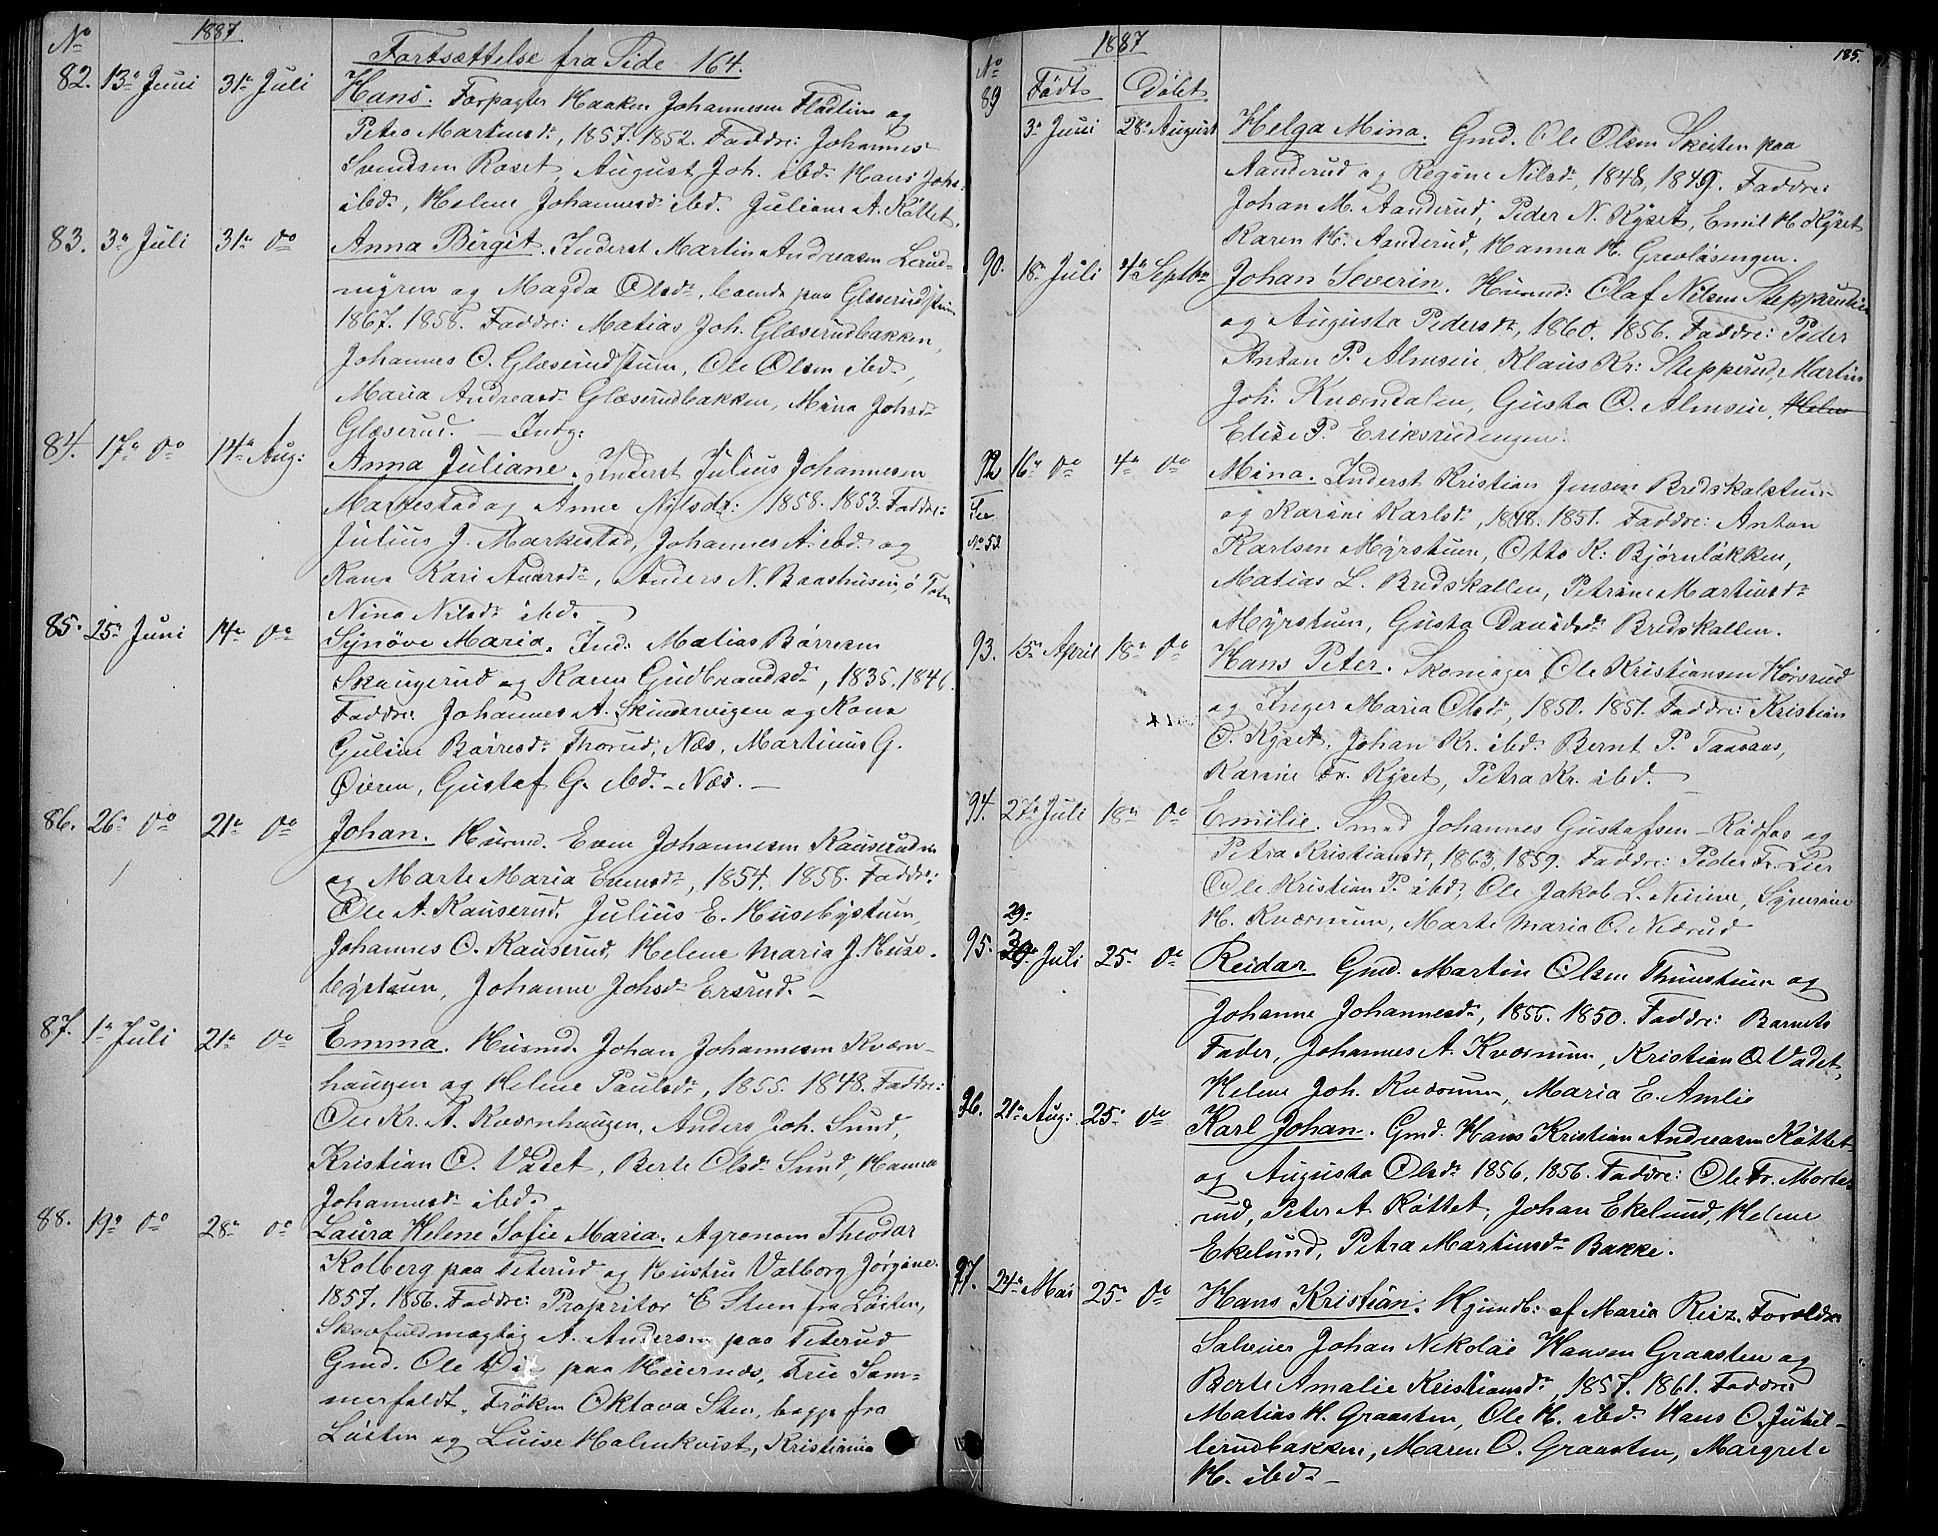 No 1887
Fortsættelse fra Side 164.
82. 13de Juni 31te Juli Hans. Forpagter Haaken Johannesen Fladlien og
Petro Martinsdr, 1857. 1852. Faddre: Johannes
Svendsen Roset, August Joh. ibd. Hans Johs.
ibd., Helene Johannesdr ibd. Juliane A. Kóttet.
83. 3de Juli 31te do Anna Birgit. Inderst Martin Andreasen Lerud-
nigren og Magda Olsdr, boende paa Glæserudstuen
1867. 1858. Faddre: Matias Joh. Glæserudbakken,
Johannes O. Glæserudstuen, Ole Olsen ibd.,
Maria Andreasdr Glæserudbakken, Mina Johsdr
Glæserud. — Indg:
84. 17de do 14de Aug: Anna Juliane. Inderst Julius Johannesen
Markestad og Anne Nilsdr: 1858. 1853. Faddre:
Julius J. Markestad, Johannes A. ibd. og
Kone Kari Andersdr, Anders N. Baashusein, ö Toten
Nina Nilsdr ibd.
85. 25de Juni 14de do Synöve Maria. Ind: Matias Börresen
Skaugerud og Karen Gudbrandsdr, 1835. 1846.
Faddre: Johannes A. Skindervigen og Kone
Guline Börresdr Thorud, Næs, Martinius G.
Öieren, Gustaf G. ibd. – Næs. —
86. 26de do 21de do Johan. Husmd. Even Johannesen Kauserudeie
og Marte Maria Evensdr, 1854. 1858. Faddre:
Ole A. Kauserud, Julius E. Husebÿstuen
Johannes O. Kauserud, Helene Maria J. Huse-
býstuen, Johanne Johsdr Ersrud. —
87. 1ste Juli 21de do Emma. Husmd. Johan Johannesen Kværn-
haugen og Helene Paulsdr, 1855. 1848. Faddre:
Ole Kr. A. Kværnhaugen, Anders Joh. Sund,
Kristian O. Vadet, Berte Olsdr Sund, Hanna
Johannesdr ibd.
88. 19de do 28de do Laura Helene Sofie Maria. Agronom Theodor
Kolberg paa Teterud og Hustru Valborg Jörgine.
1857. 1856. Faddre: Propritör E Steen fra Löiten,
Skovfuldmægtig A. Andersen paa Teterud
Gmd. Ole Lie paa Heiernæs, Frue Som-
merfeldt, Fröken Oktava Sten, begge fra
Löiten og Luise Halmkvist, Kristiania
1887 185.
No Födt Döbt
89 3de Juni 28de August Helga Mina. Gmd. Ole Olsen Skeisten paa
Aanderud og Regine Nilsdr, 1848, 1849. Faddre:
Johan M. Aanderud, Peder N. Kÿset, Emil H. Kÿset
Karen H. Aanderud, Hanna H. Grevlösingen.
90. 18de Juli 4de Septbr Johan Severin. Husmd: Olaf Nilsen Stepperudeie
og Augusta Pedersdr, 1860. 1856. Faddre: Peder
Anton P. Almseie, Klaus Kr: Stepperud, Martin
Joh. Kværndalen, Gusta O. Almseie, Helen
Elise P. Eriksrudengen.
92 16de do 4de do Mina. Inderst Kristian Jensen Bredskalstuen
Se No 53. og Karine Karlsdr, 1848. 1851. Faddre: Anton
Karlsen Mÿrstuen, Otto K: Björnlökken,
Matias L. Bredskallen, Petrine Martinsdr
Mÿrstuen, Gusta Davidsdr Bredskallen.
93. 15de April 18de do Hans Peter. Skomager Ole Kristiansen Hörsrud
og Inger Maria Olsdr, 1850. 1851. Faddre: Kristian
O. Kÿset, Johan Kr. ibd. Bernt P. Taasaas,
Karine Fr. Kÿset, Petra Kr. ibd.
94. 27de Juli 18de do Emilie. Smed Johannes Gustafsen – Rödfos og
Petra Kristiansdr, 1863, 1859. Faddre: Peder Fr. Lier
Ole Kristian P. ibd, Ole Jakob L. Neiene, Sÿverine
H. Kværnum, Marte Maria O. Nærud
29de
95. Juli 25de do Reidar Gmd. Martin Olsen Thunstuen og
Johanne Johannesdr, 1855. 1850. Faddre: Barnets
Fader, Johannes A. Kværnum, Kristian O. Vadet,
Helene Joh. Kværnum, Maria E. Amlie
96. 21de Aug: 25de do Karl Johan. Gmd. Hans Kristian Andreasen Köttet
og Augusta Olsdr 1856, 1856. Faddre: Ole Fr. Morte-
rud, Peter A. Köttet, Johan Ekelund, Helene
Ekelund, Petra Martinsdr Bakke.
97. 24de Mai 25de do Hans Kristian. Hjemdb: af Maria Reiz. Forældre
Salveier Johan Nikolai Hansen Graasten og
Berte Amalie Kristiansdr, 1857. 1861. Faddre
Matias H. Graasten, Ole H. ibd. Hans O. Jukul-
lerudbakken, Maren O. Graasten, Margrete
H. ibd. —